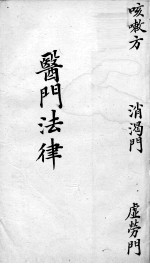 咳嗽方
消渴門
虛勞門
醫門法律